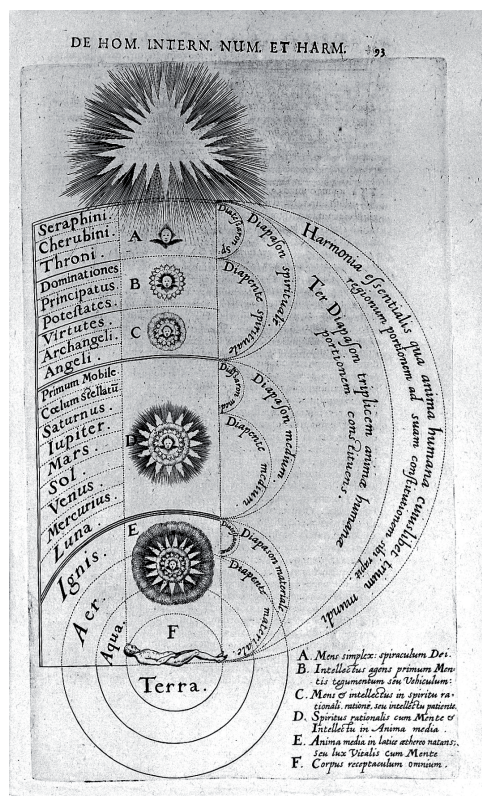 DE HOM. INTERN. NUM. ET HARM. 93
Seraphini.
Cherubini.
Throni.
Dominationes
Principatus
Potestates.
Virtutes.
Archangeli.
Angeli.
Primum Mobile.
Cœlum Stellatū
Saturnus.
Iupiter.
Mars.
Sol
Venus.
Mercurius.
Luna.
Ignis.
Aer.
Aqua.
Terra.
A
B
C
D
E
F
Diatessaron sp
Diapason spirituale
Diapente spirituale
Diapason medium.
Diapente medium.
Diapason materiale
Diapente materiale.
Harmonia essentialis qua anima humana cuiuslibet trium
regionum portionem ad suam constitutionem sibi rapit
mundi
Ter Diapason triplicem animæ humanæ
portionem constituens.
A. Mens simplex: spiraculum Dei.
B. Intellectus agens primum Men-
tis tegumentum seu Vehiculum:
C. Mens & intellectus in spiritu ra-
tionali. ratione, seu intellectu patiente.
D. Spiritus rationalis cum Mente &
Intellectu in Anima media.
E. Anima media in latice æthereo natans;
seu lux Vitalis cum Mente
F. Corpus receptaculum omnium.